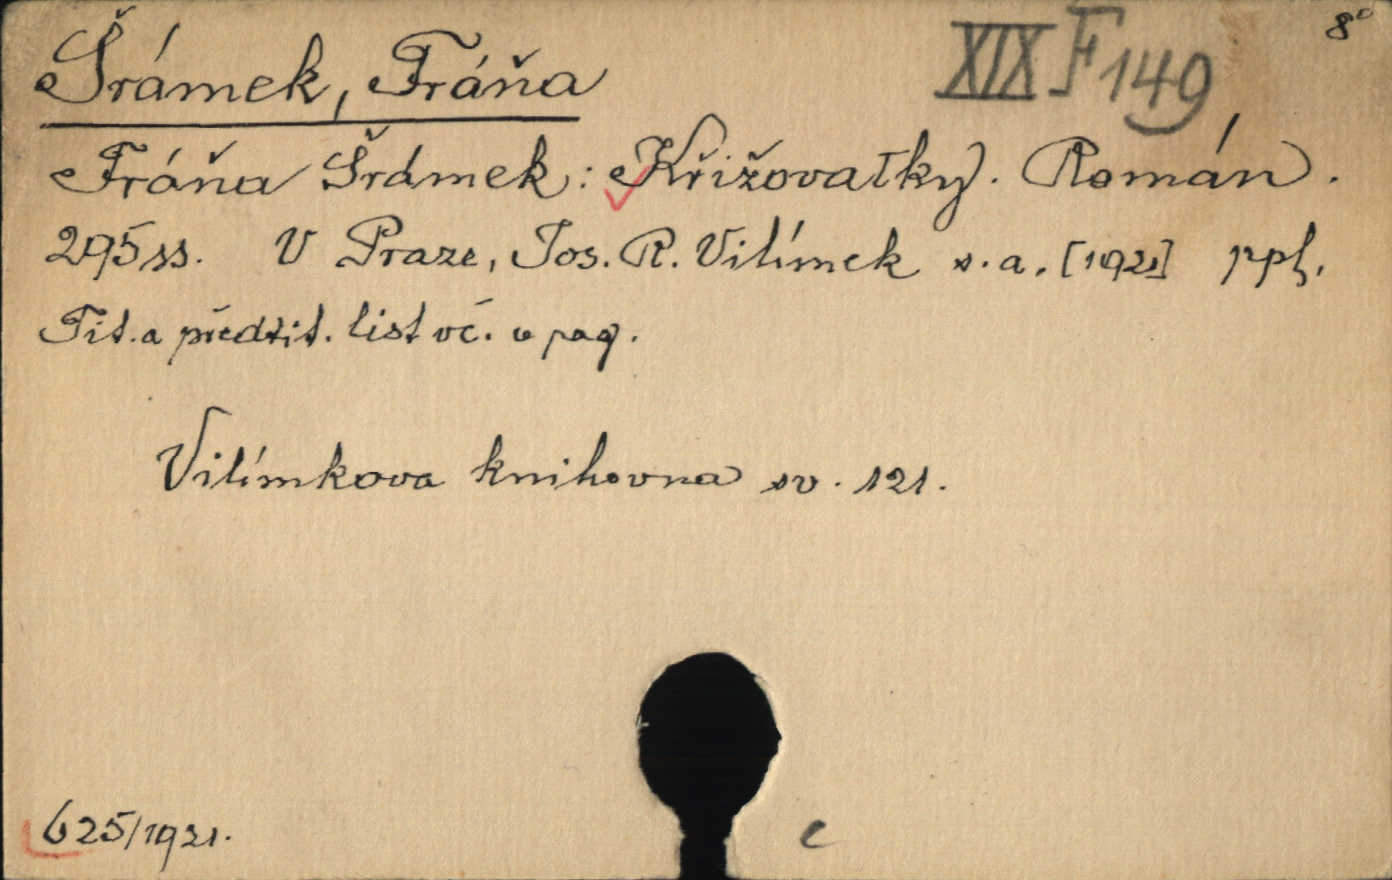 Šrámek, Fráňa
XIX F 149
8°
Fráňa Šrámek: Křižovatky. Román.
295 ss. V Praze, Jos. R. Vilímek s. a. [1921] ppl.
Tit. a předtit. list vč. v pag.
Vilímkova knihovna sv. 121.
625/1921.
c